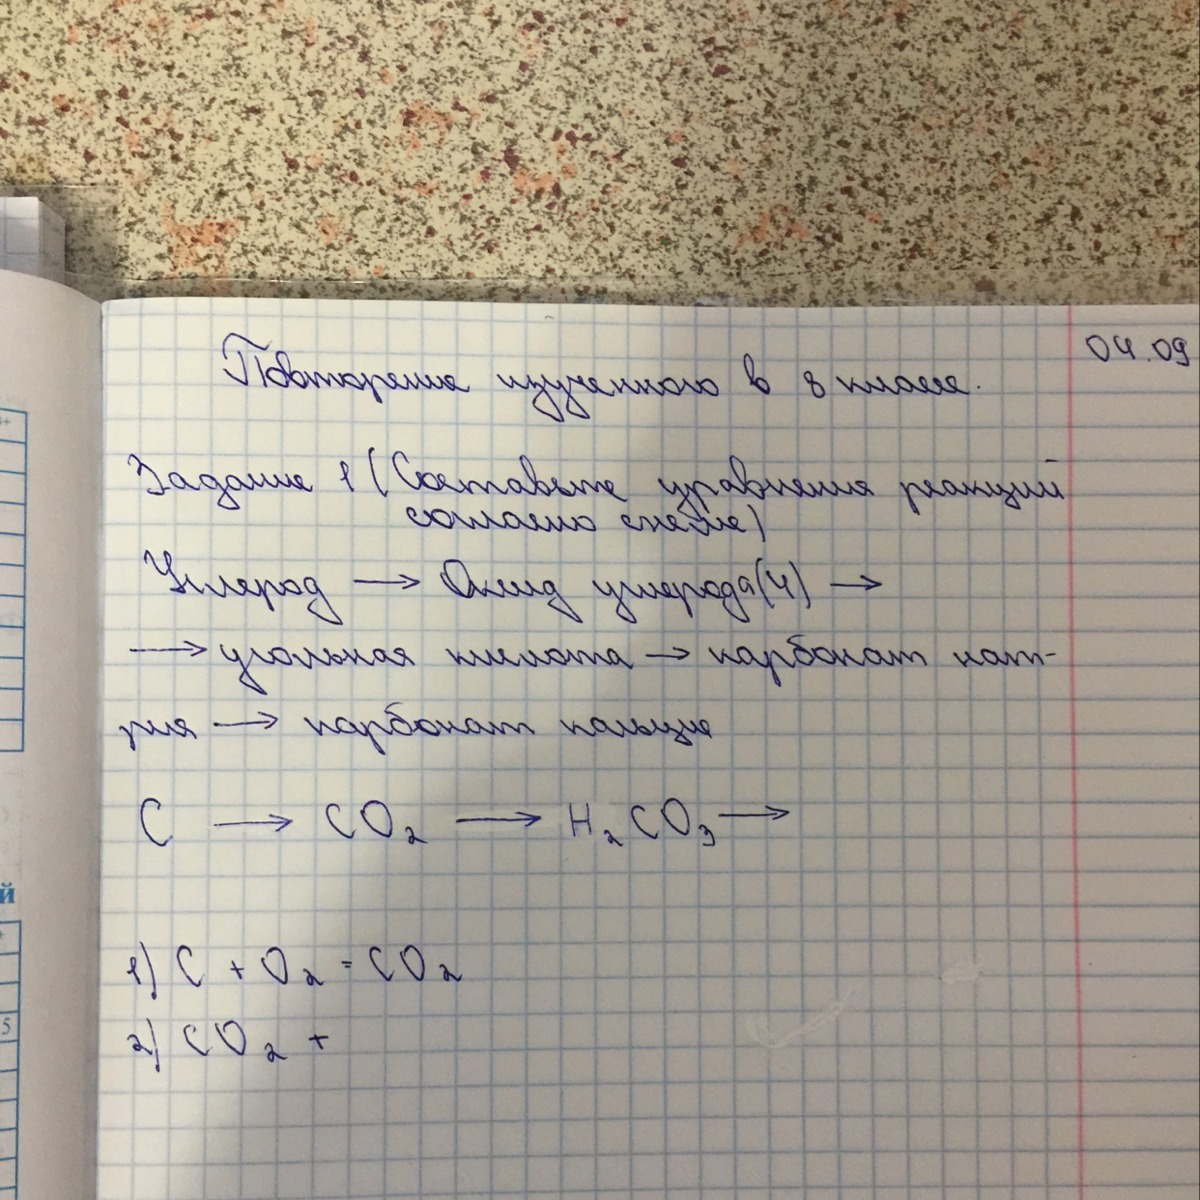 04.09
Повторение изученного в 8 классе.
Задание 1 (Составьте уравнения реакций
согласно схеме)
Углерод → Оксид углерода(4) →
→ угольная кислота → карбонат нат-
рия → карбонат кальция
C → CO₂ → H₂CO₃ →
1) C + O₂ = CO₂
2) CO₂ +
й
5